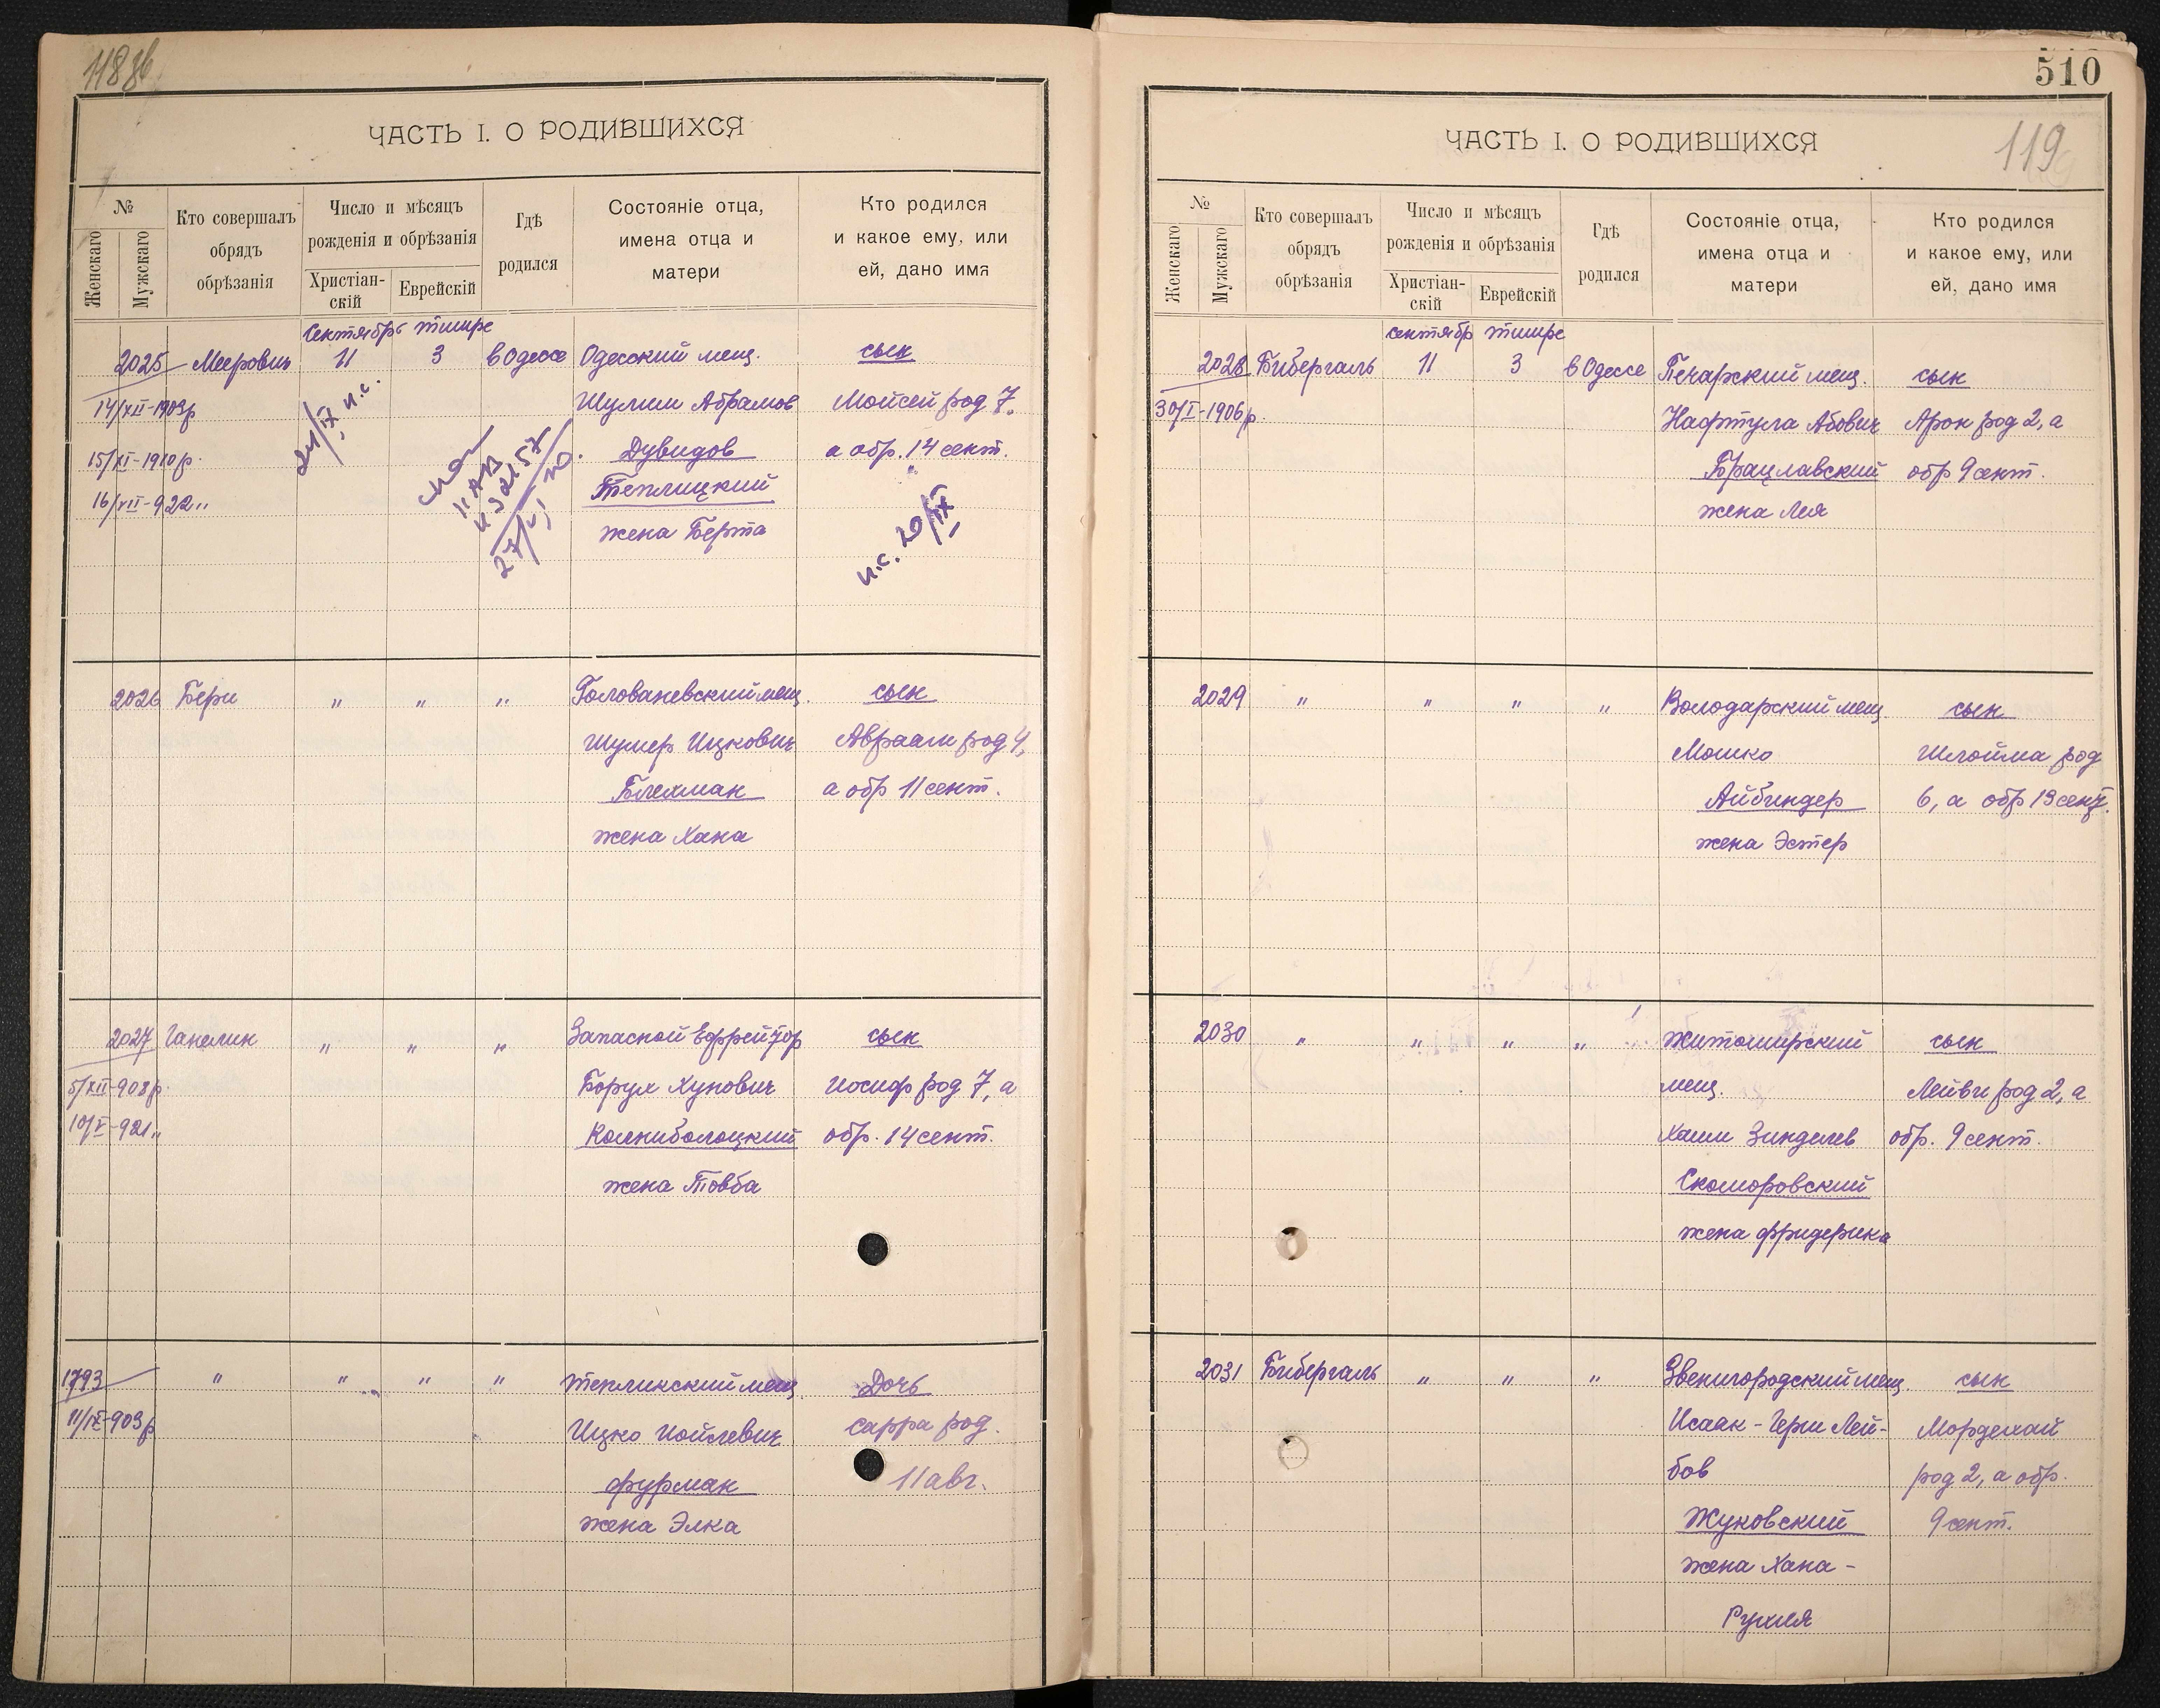 ЧАСТЬ I. О РОДИВШИХСЯ
№
Женскаго
Мужскаго
Кто совершалъ
обрядъ
обрѣзанія
Число и мѣсяцъ
рожденія и обрѣзанія
Христіан-
скій
Еврейскій
Гдѣ
родился
Состояніе отца,
имена отца и
матери
Кто родился
и какое ему, или
ей, дано имя
Сентябрь тишре
2025 Меерович 11 3 в Одессе Одесский мещ. сын
14/XII-1909р Шулим Абрамов Мойсей род 7,
15/XI-1910р. Дувидов а обр. 14 сент.
16/VII-922 "
Теплицкий
жена Берта
21/IX н.с.
27/VI
н.с. 20/IX
2026 Бери " " " Голованевский мещ. сын
Шумер Ицкович Авраам род 4,
Блехман а обр 11 сент.
жена Хана
2027 Ганелин " " " Запасной Ефрейтор сын
5/XII-908р. Борух Хунович Иосиф род 7, а
10/V-921 " Колниболоцкий обр. 14 сент.
жена Товба
1793 " " " " Тепликский мещ. Дочь
11/IX-903р Ицко Иойлевич Сарра род.
Фурман 11 авг.
жена Элка
510
119
ЧАСТЬ I. О РОДИВШИХСЯ
№
Женскаго
Мужскаго
Кто совершалъ
обрядъ
обрѣзанія
Число и мѣсяцъ
рожденія и обрѣзанія
Христіан-
скій
Еврейскій
Гдѣ
родился
Состояніе отца,
имена отца и
матери
Кто родился
и какое ему, или
ей, дано имя
сентябр тишре
2028 Бибергаль 11 3 в Одессе Печарский мещ. сын
30/I-1906р. Нафтула Абович Арон род 2, а
Брацлавский обр 9 сент.
жена Лея
2029 " " " " Володарский мещ сын
Мошко Шлойма род
Айбиндер 6, а обр 13 сент.
жена Эстер
2030 " " " " Житомирский сын
мещ. Лейви род 2, а
Хаим Зинделев обр. 9 сент.
Скоморовский
жена Фридерика
2031 Бибергаль " " " Звенигородский мещ. сын
Исаак-Герш Лей- Мордехай
бов род 2, а обр.
Жуковский 9 сент.
жена Хана-
Рухля